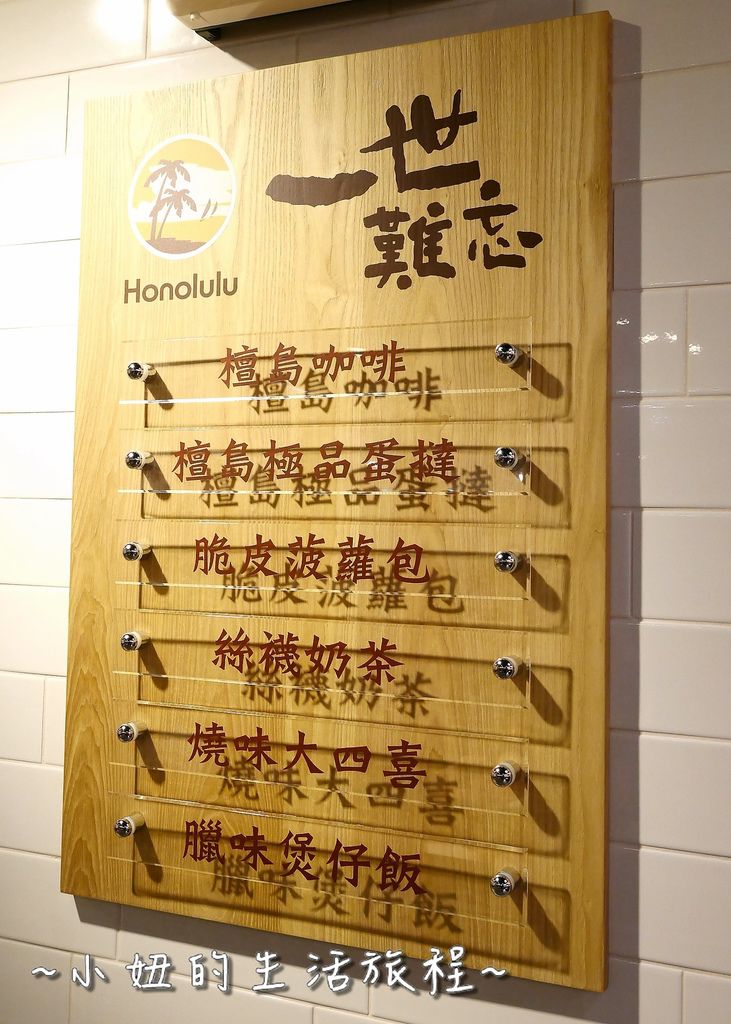 一世
難忘
Honolulu
檀島咖啡
檀島極品蛋撻
脆皮菠蘿包
絲襪奶茶
燒味大四喜
臘味煲仔飯
~小妞的生活旅程~